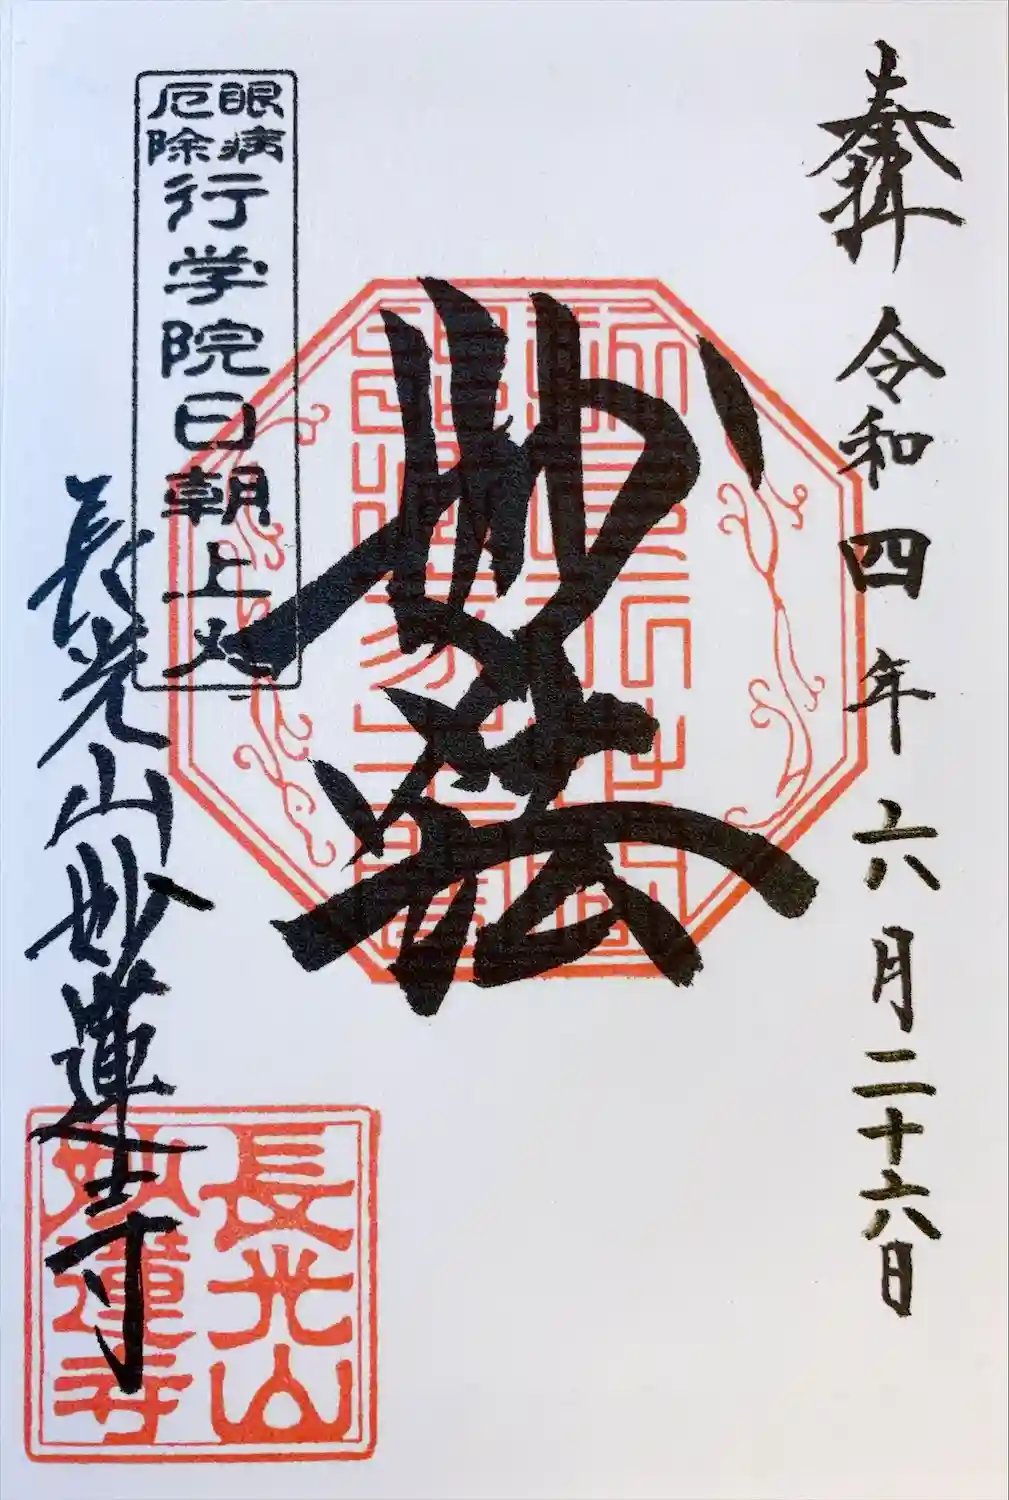 奉拝
令和四年六月二十六日
妙法
眼病
厄除
行学院日朝上人
長光山妙蓮寺
長光山
妙蓮寺